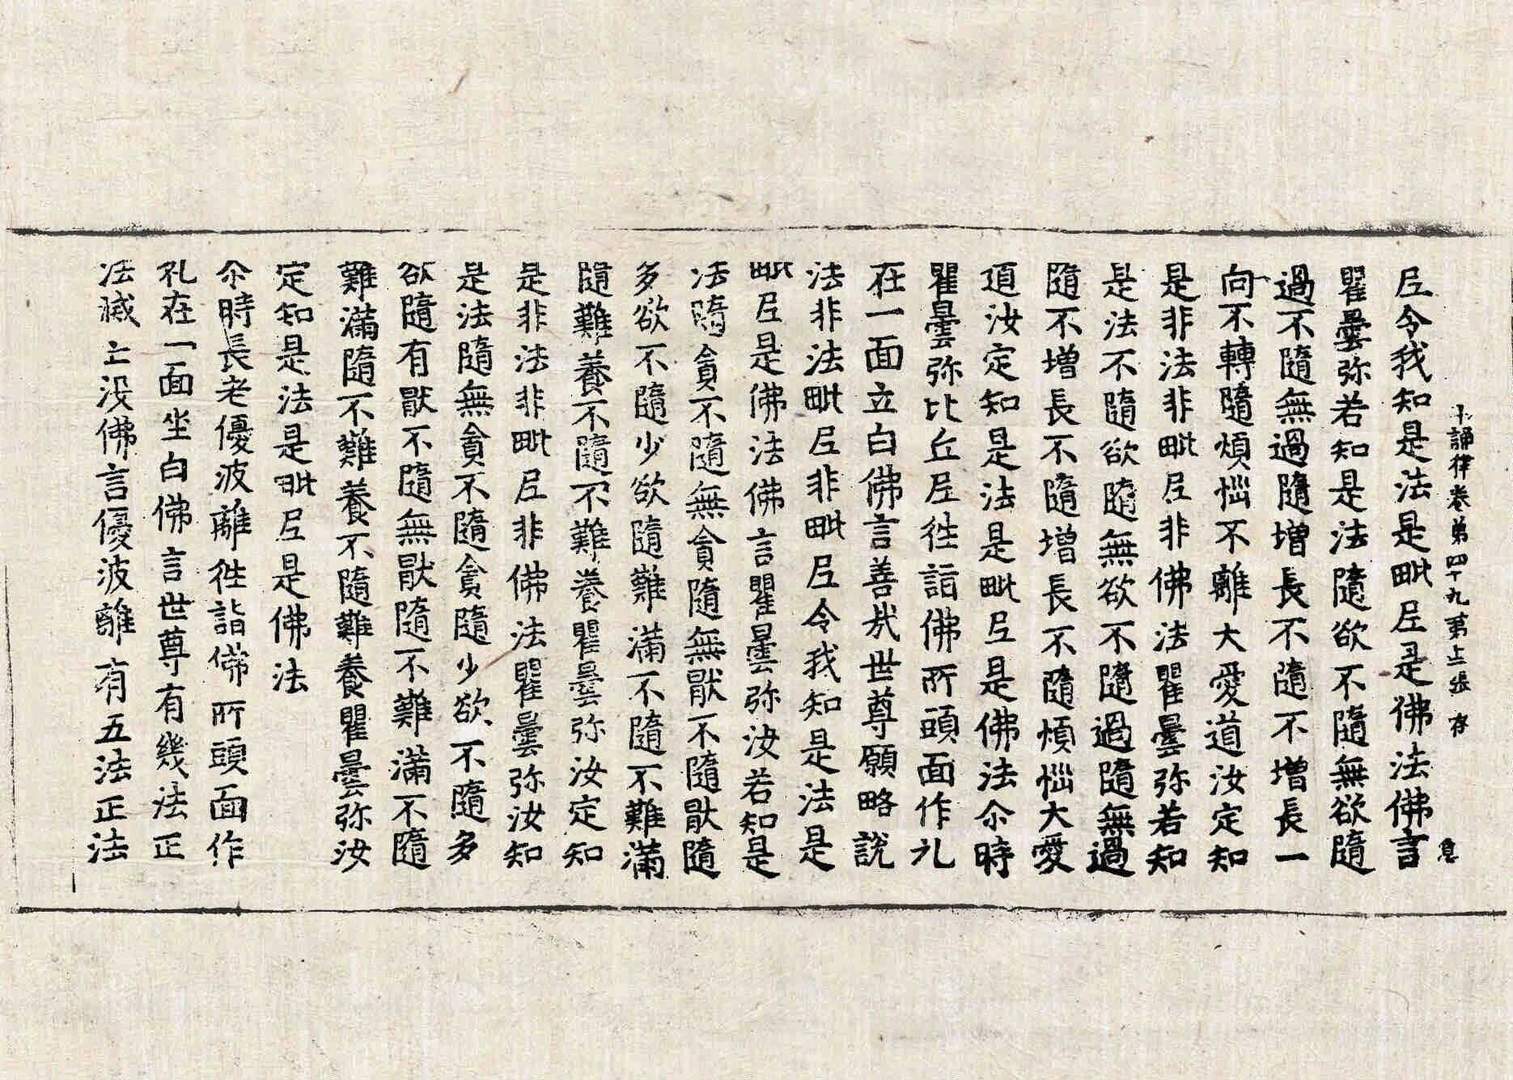 十誦律卷第四十九第張 存
息
尼令我知是法是毗尼是佛法佛言
瞿曇弥若知是法隨欲不隨無欲隨
過不隨無過隨增長不隨不增長一
向不轉隨煩惱不離大愛道汝定知
是非法非毗尼非佛法瞿曇弥若知
是法不隨欲隨無欲不隨過隨無過
隨不增長不隨增長不隨煩惱大愛
道汝定知是法是毗尼是佛法尒時
瞿曇弥比丘尼往詣佛所頭面作礼
在一面立白佛言善哉世尊願略說
法非法毗尼非毗尼令我知是法是
毗尼是佛法佛言瞿曇弥汝若知是
法隨貪不隨無貪隨無猒不隨猒隨
多欲不隨少欲隨難滿不隨不難滿
隨難養不隨不難養瞿曇弥汝定知
是非法非毗尼非佛法瞿曇弥汝知
是法隨無貪不隨貪隨少欲不隨多
欲隨有猒不隨無猒隨不難滿不隨
難滿隨不難養不隨難養瞿曇弥汝
定知是法是毗尼是佛法
尒時長老優波離往詣佛所頭面作
礼在一面坐白佛言世尊有幾法正
法滅亡没佛言優波離有五法正法